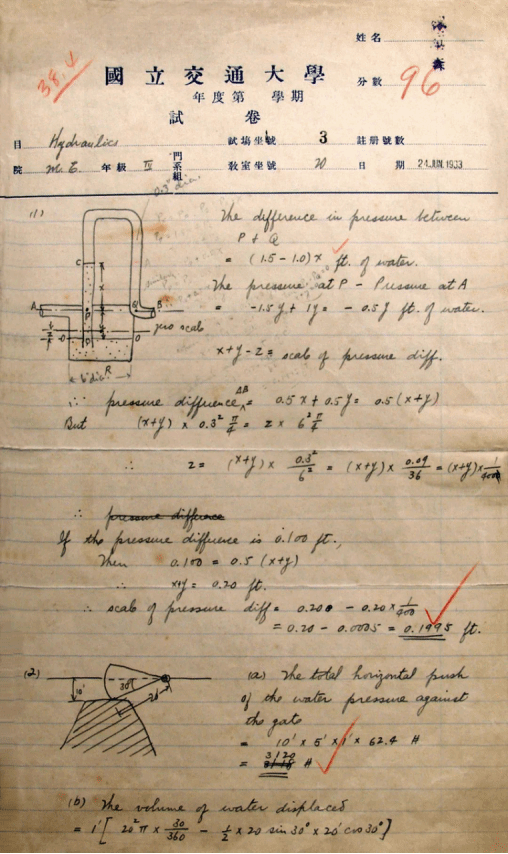 姓名
38.4
國立交通大學
分數 96
年度第 學期
試 卷
目 Hydraulics 試場坐號 3 註册號數
院 M.E. 年級 IV 門系組 教室坐號 20 日 期 24 JUN. 1933
0.3" dia.
(1) The difference in pressure between
P & Q
= (1.5 - 1.0) x ft. of water.
The pressure at P - Pressure at A
= -1.5y + 1y = -0.5y ft. of water.
x + y - z = scale of pressure diff.
C
A B
P Q
zero scale
O O
R
6" dia
∴ pressure difference AB = 0.5x + 0.5y = 0.5(x+y)
But (x+y) × 0.3² π/4 = z × 6² π/4
∴ z = (x+y) × 0.3²/6² = (x+y) × 0.09/36 = (x+y) × 1/400
∴ pressure difference
If the pressure difference is 0.100 ft.,
Then 0.100 = 0.5 (x+y)
∴ x+y = 0.20 ft.
∴ scale of pressure diff = 0.200 - 0.20 × 1/400
= 0.20 - 0.0005 = 0.1995 ft.
(2) 10' 30° 20'
(a) The total horizontal push
of the water pressure against
the gate
= 10' × 5' × 1' × 62.4 #
= 3120 #
(b) The volume of water displaced
= 1' [ 20² π × 30/360 - 1/2 × 20 sin 30° × 20' cos 30° ]